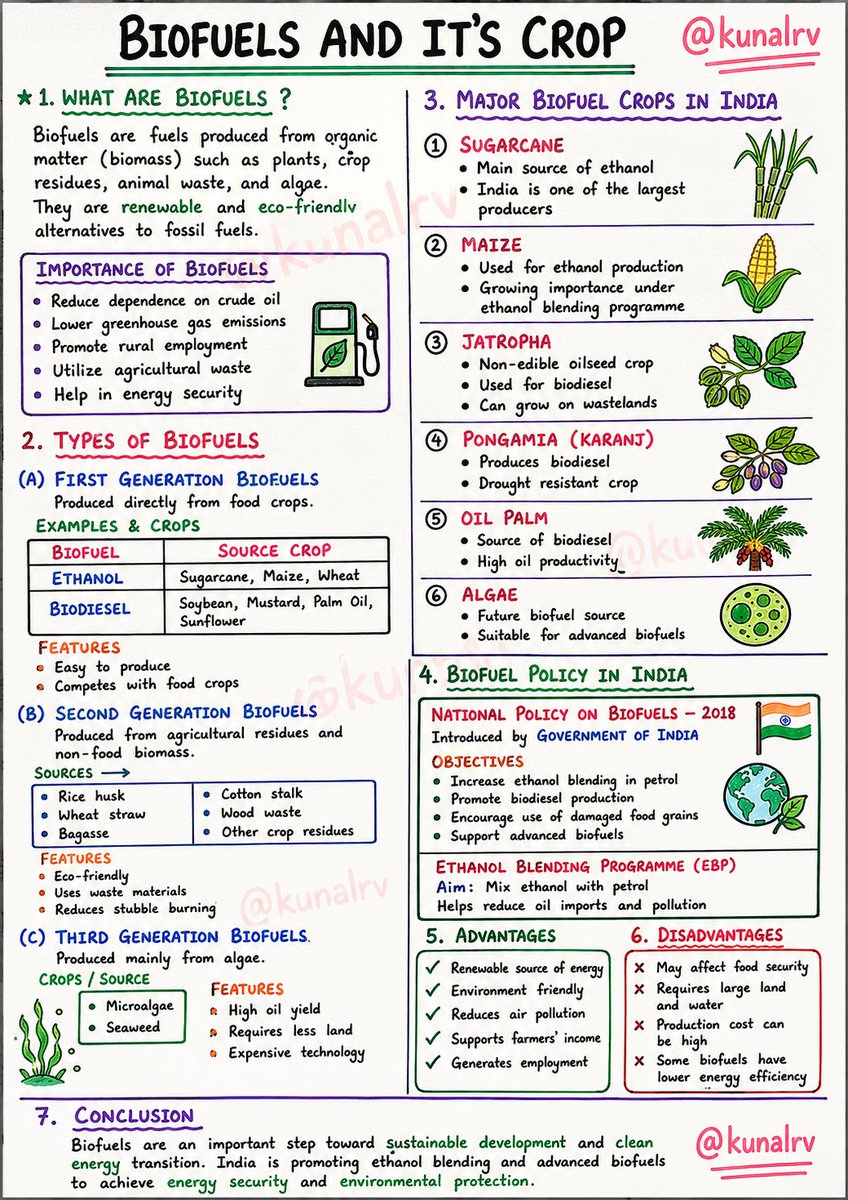 BIOFUELS AND IT'S CROP
@kunalrv
★ 1. WHAT ARE BIOFUELS ?
Biofuels are fuels produced from organic
matter (biomass) such as plants, crop
residues, animal waste, and algae.
They are renewable and eco-friendly
alternatives to fossil fuels.
IMPORTANCE OF BIOFUELS
• Reduce dependence on crude oil
• Lower greenhouse gas emissions
• Promote rural employment
• Utilize agricultural waste
• Help in energy security
2. TYPES OF BIOFUELS
(A) FIRST GENERATION BIOFUELS
Produced directly from food crops.
EXAMPLES & CROPS
BIOFUEL SOURCE CROP
ETHANOL Sugarcane, Maize, Wheat
BIODIESEL Soybean, Mustard, Palm Oil,
Sunflower
FEATURES
• Easy to produce
• Competes with food crops
(B) SECOND GENERATION BIOFUELS
Produced from agricultural residues and
non-food biomass.
SOURCES →
• Rice husk
• Wheat straw
• Bagasse
• Cotton stalk
• Wood waste
• Other crop residues
FEATURES
• Eco-friendly
• Uses waste materials
• Reduces stubble burning
(C) THIRD GENERATION BIOFUELS.
Produced mainly from algae.
CROPS / SOURCE
• Microalgae
• Seaweed
FEATURES
• High oil yield
• Requires less land
• Expensive technology
3. MAJOR BIOFUEL CROPS IN INDIA
① SUGARCANE
• Main source of ethanol
• India is one of the largest
producers
② MAIZE
• Used for ethanol production
• Growing importance under
ethanol blending programme
③ JATROPHA
• Non-edible oilseed crop
• Used for biodiesel
• Can grow on wastelands
④ PONGAMIA (KARANJ)
• Produces biodiesel
• Drought resistant crop
⑤ OIL PALM
• Source of biodiesel
• High oil productivity_
⑥ ALGAE
• Future biofuel source
• Suitable for advanced biofuels
4. BIOFUEL POLICY IN INDIA
NATIONAL POLICY ON BIOFUELS – 2018
Introduced by GOVERNMENT OF INDIA
OBJECTIVES
• Increase ethanol blending in petrol
• Promote biodiesel production
• Encourage use of damaged food grains
• Support advanced biofuels
ETHANOL BLENDING PROGRAMME (EBP)
Aim: Mix ethanol with petrol
Helps reduce oil imports and pollution
5. ADVANTAGES
✓ Renewable source of energy
✓ Environment friendly
✓ Reduces air pollution
✓ Supports farmers' income
✓ Generates employment
6. DISADVANTAGES
✗ May affect food security
✗ Requires large land
and water
✗ Production cost can
be high
✗ Some biofuels have
lower energy efficiency
7. CONCLUSION
Biofuels are an important step toward sustainable development and clean
energy transition. India is promoting ethanol blending and advanced biofuels
to achieve energy security and environmental protection.
@kunalrv
@kunalrv
@kunalrv
@kunalrv